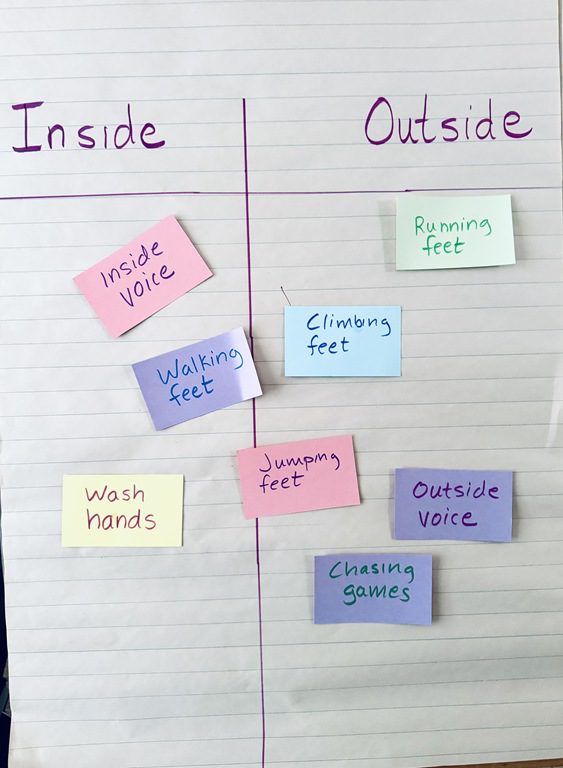 Inside
Outside
Inside
voice
Walking
feet
Wash
hands
Running
feet
Climbing
feet
Jumping
feet
Outside
voice
Chasing
games